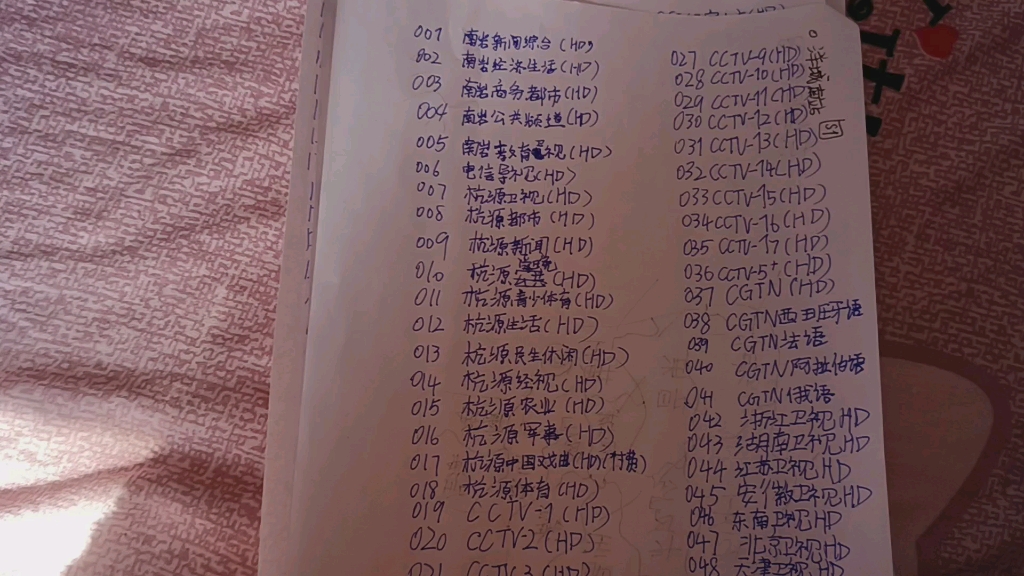 001 南岩新闻综合(HD)
002 南岩经济生活(HD)
003 南岩商务都市(HD)
004 南岩公共频道(HD)
005 南岩教育视(HD)
006 电信导视(HD)
007 杭源卫视(HD)
008 杭源都市(HD)
009 杭源新闻(HD)
010 杭源(HD)
011 杭源青少体育(HD)
012 杭源生活(HD)
013 杭源民生休闲(HD)
014 杭源经视(HD)
015 杭源农业(HD)
016 杭源军事(HD)
017 杭源中国戏曲(HD)(付费)
018 杭源体育(HD)
019 CCTV-1(HD)
020 CCTV-2(HD)
021 CCTV-3(HD)
027 CCTV-9(HD)
028 CCTV-10(HD)
029 CCTV-11(HD)
030 CCTV-12(HD)
031 CCTV-13(HD)
032 CCTV-14(HD)
033 CCTV-15(HD)
034 CCTV-16(HD)
035 CCTV-17(HD)
036 CCTV-5+(HD)
037 CGTN(HD)
038 CGTN西班牙语
039 CGTN法语
040 CGTN阿拉伯语
041 CGTN俄语
042 浙江卫视HD
043 湖南卫视HD
044 江苏卫视HD
045 安徽卫视HD
046 东南卫视HD
047 北京卫视HD
048 天津卫视HD